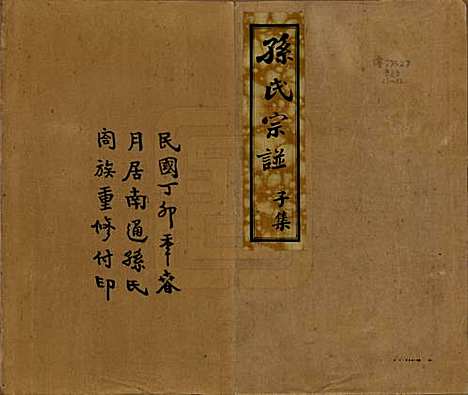 孫氏宗譜
子集
民國丁卯年容
月居南通孫氏
闔族重修付印